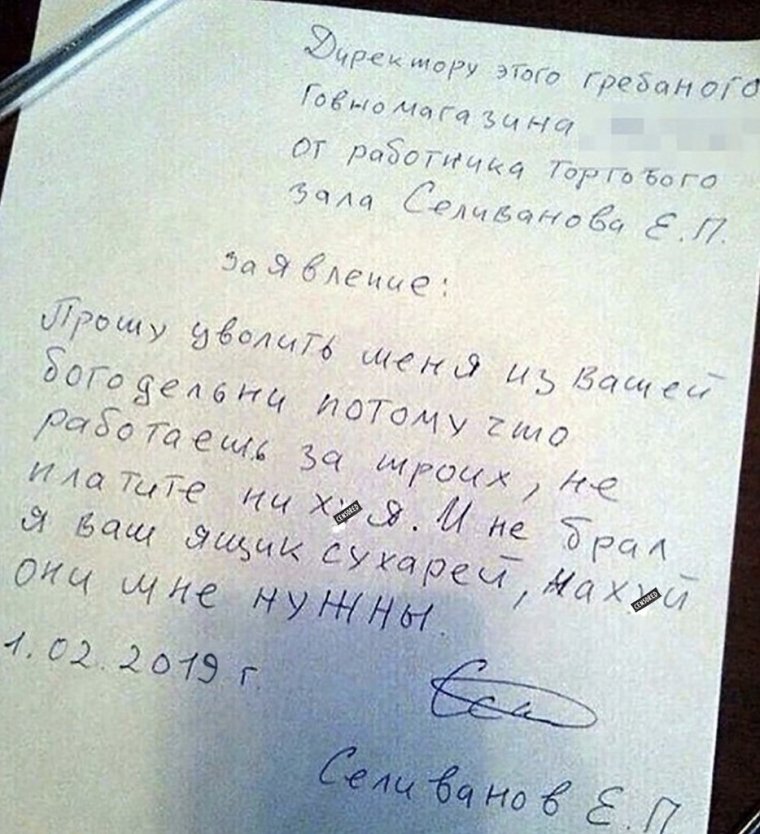 Директору этого гребаного
Говномагазина
от работника торгового
зала Селиванова Е.П.
заявление:
Прошу уволить меня из вашей
богодельни потому что
работаешь за троих, не
платите ни х я. И не брал
я ваш ящик сухарей, нах й
они мне нужны.
1.02.2019 г.
Селиванов Е.П
CENSORED
CENSORED